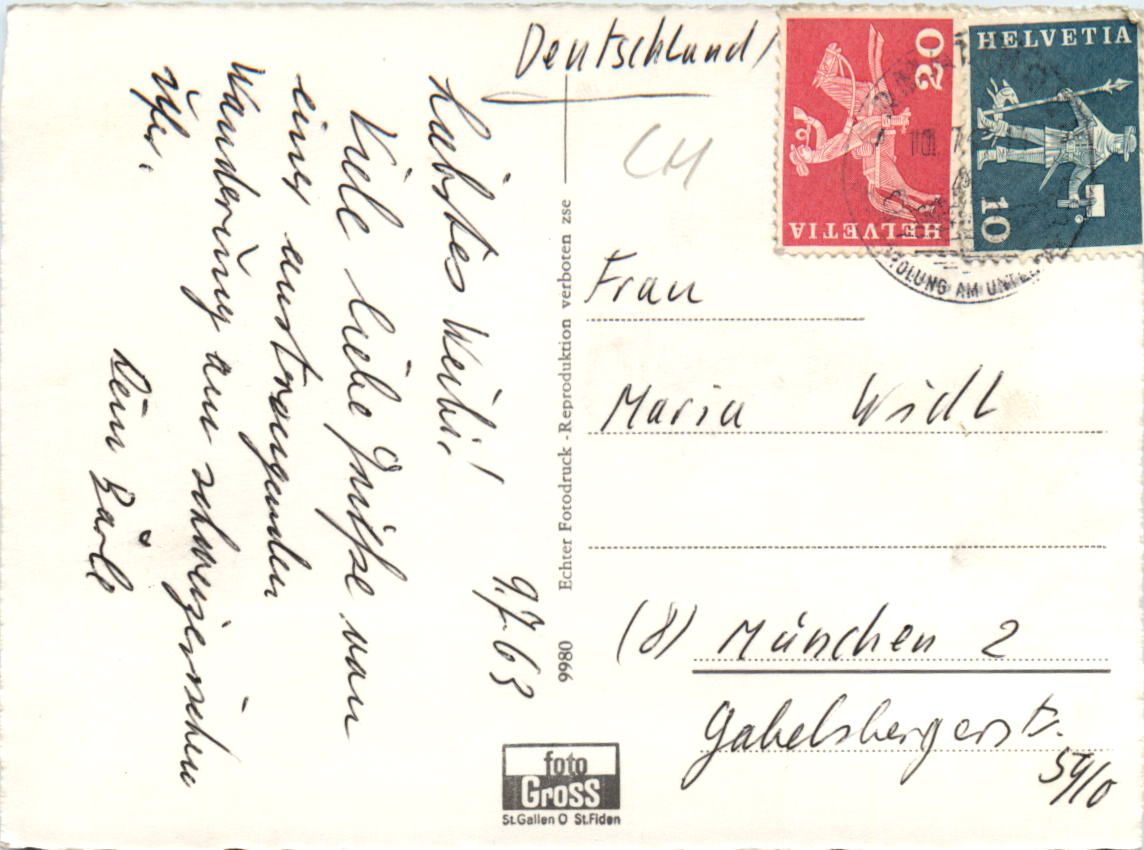 Deutschland
CH
HELVETIA
20
HELVETIA
10
Liebstes Weibi!
9.7.63
Viele liebe Grüße von
einer anstrengenden
Wanderung am schweizerischen
Ufer.
Dein Bärle
9980 Echter Fotodruck - Reproduktion verboten zse
foto
Gross
St.Gallen O St.Fiden
Frau
Maria Widl
(8) München 2
Gabelsbergerstr.
59/0
AM